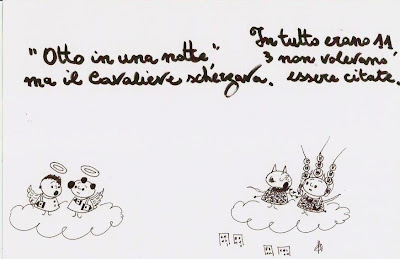 "Otto in una notte"
ma il Cavaliere scherzava.
In tutto erano 11
3 non volevano
essere citate.